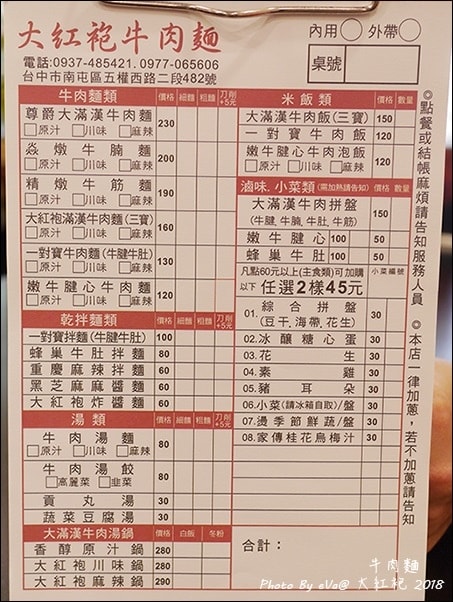 大紅袍牛肉麵
電話:0937-485421. 0977-065606
台中市南屯區五權西路二段482號
內用 外帶
桌號
牛肉麵類 價格 細麵 粗麵 刀削+5元
尊爵大滿漢牛肉麵 230
原汁 川味 麻辣
焱燉牛腩麵 200
原汁 川味 麻辣
精燉牛筋麵 190
原汁 川味 麻辣
大紅袍滿漢牛肉麵(三寶) 160
原汁 川味 麻辣
一對寶牛肉麵(牛腱牛肚) 130
原汁 川味 麻辣
嫩牛腱心牛肉麵 120
原汁 川味 麻辣
乾拌麵類 價格 細麵 粗麵 刀削+5元
一對寶拌麵(牛腱牛肚) 100
蜂巢牛肚拌麵 80
重慶麻辣拌麵 60
黑芝麻麻醬麵 60
大紅袍炸醬麵 60
湯類 價格 細麵 粗麵 刀削+5元
牛肉湯麵 80
原汁 川味 麻辣
牛肉湯餃 80
高麗菜 韭菜
貢丸湯 30
蔬菜豆腐湯 30
大滿漢牛肉湯鍋 價格 白飯 冬粉
香醇原汁鍋 280
大紅袍川味鍋 280
大紅袍麻辣鍋 290
米飯類 價格 數量
大滿漢牛肉飯(三寶) 150
一對寶牛肉飯 120
嫩牛腱心牛肉泡飯 120
原汁 川味 麻辣
滷味.小菜類(需加熱請告知) 價格 數量
大滿漢牛肉拼盤 150
(牛腱,牛腩,牛肚,牛筋)
嫩牛腱心 100 50
蜂巢牛肚 100 50
凡點60元以上(主食類)可加購 小菜編號
以下 任選2樣45元
01. 綜合拼盤 30
(豆干,海帶,花生)
02.冰釀糖心蛋 30
03.花生 30
04.素雞 30
05.豬耳朵 30
06.小菜(請冰箱自取)/盤 30
07.燙季節鮮蔬/盤 30
08.家傳桂花烏梅汁 30
合計:
◎點餐或結帳麻煩請告知服務人員
◎本店一律加蔥,若不加蔥請告知
牛肉麵
Photo By eVo@ 大紅袍 2018